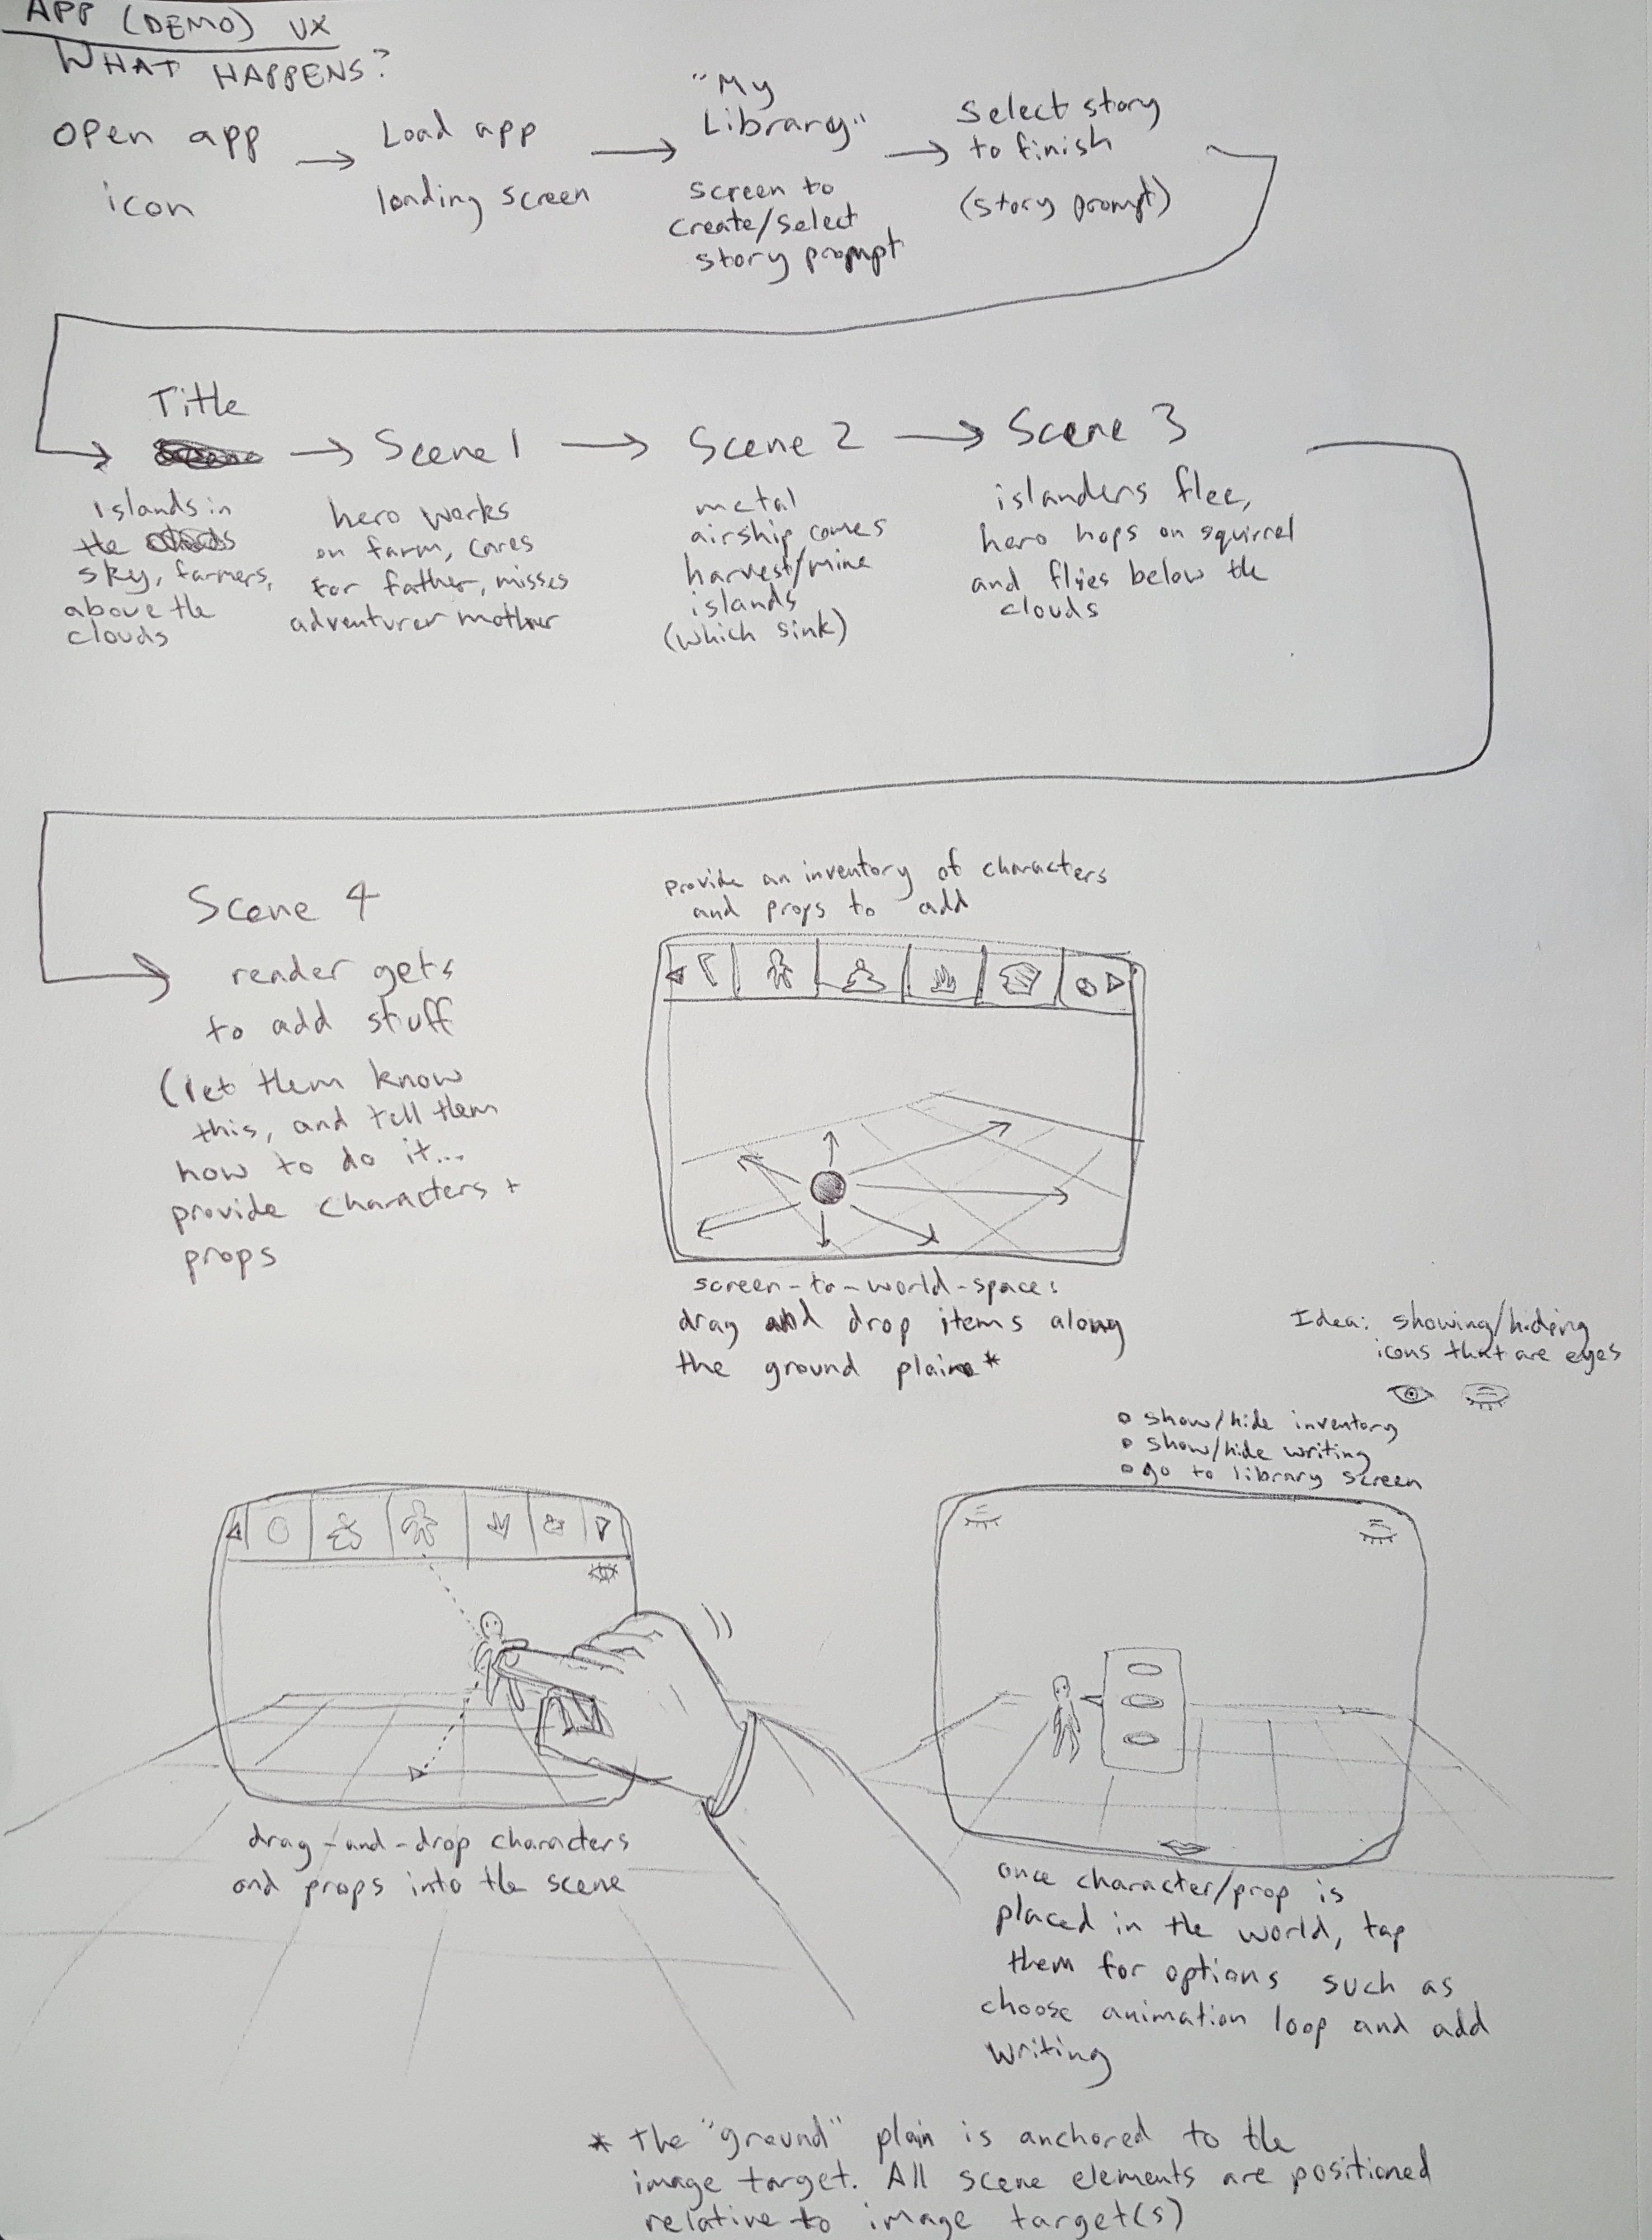 APP (DEMO) UX
WHAT HAPPENS?
open app
icon
Load app
loading screen
"My
Library"
screen to
create/select
story prompt
Select story
to finish
(story prompt)
Title
Islands in
the
sky, farmers,
above the
clouds
Scene 1
hero works
on farm, cares
for father, misses
adventurer mother
Scene 2
metal
airship comes
harvest/mine
islands
(which sink)
Scene 3
islanders flee,
hero hops on squirrel
and flies below the
clouds
Scene 4
reader gets
to add stuff
(let them know
this, and tell them
how to do it...
provide characters +
props
provide an inventory of characters
and props to add
screen-to-world-space:
drag and drop items along
the ground plain*
Idea: showing/hiding
icons that are eyes
• show/hide inventory
• show/hide writing
• go to library screen
drag-and-drop characters
and props into the scene
once character/prop is
placed in the world, tap
them for options such as
choose animation loop and add
writing
* the "ground" plain is anchored to the
image target. All scene elements are positioned
relative to image target(s)